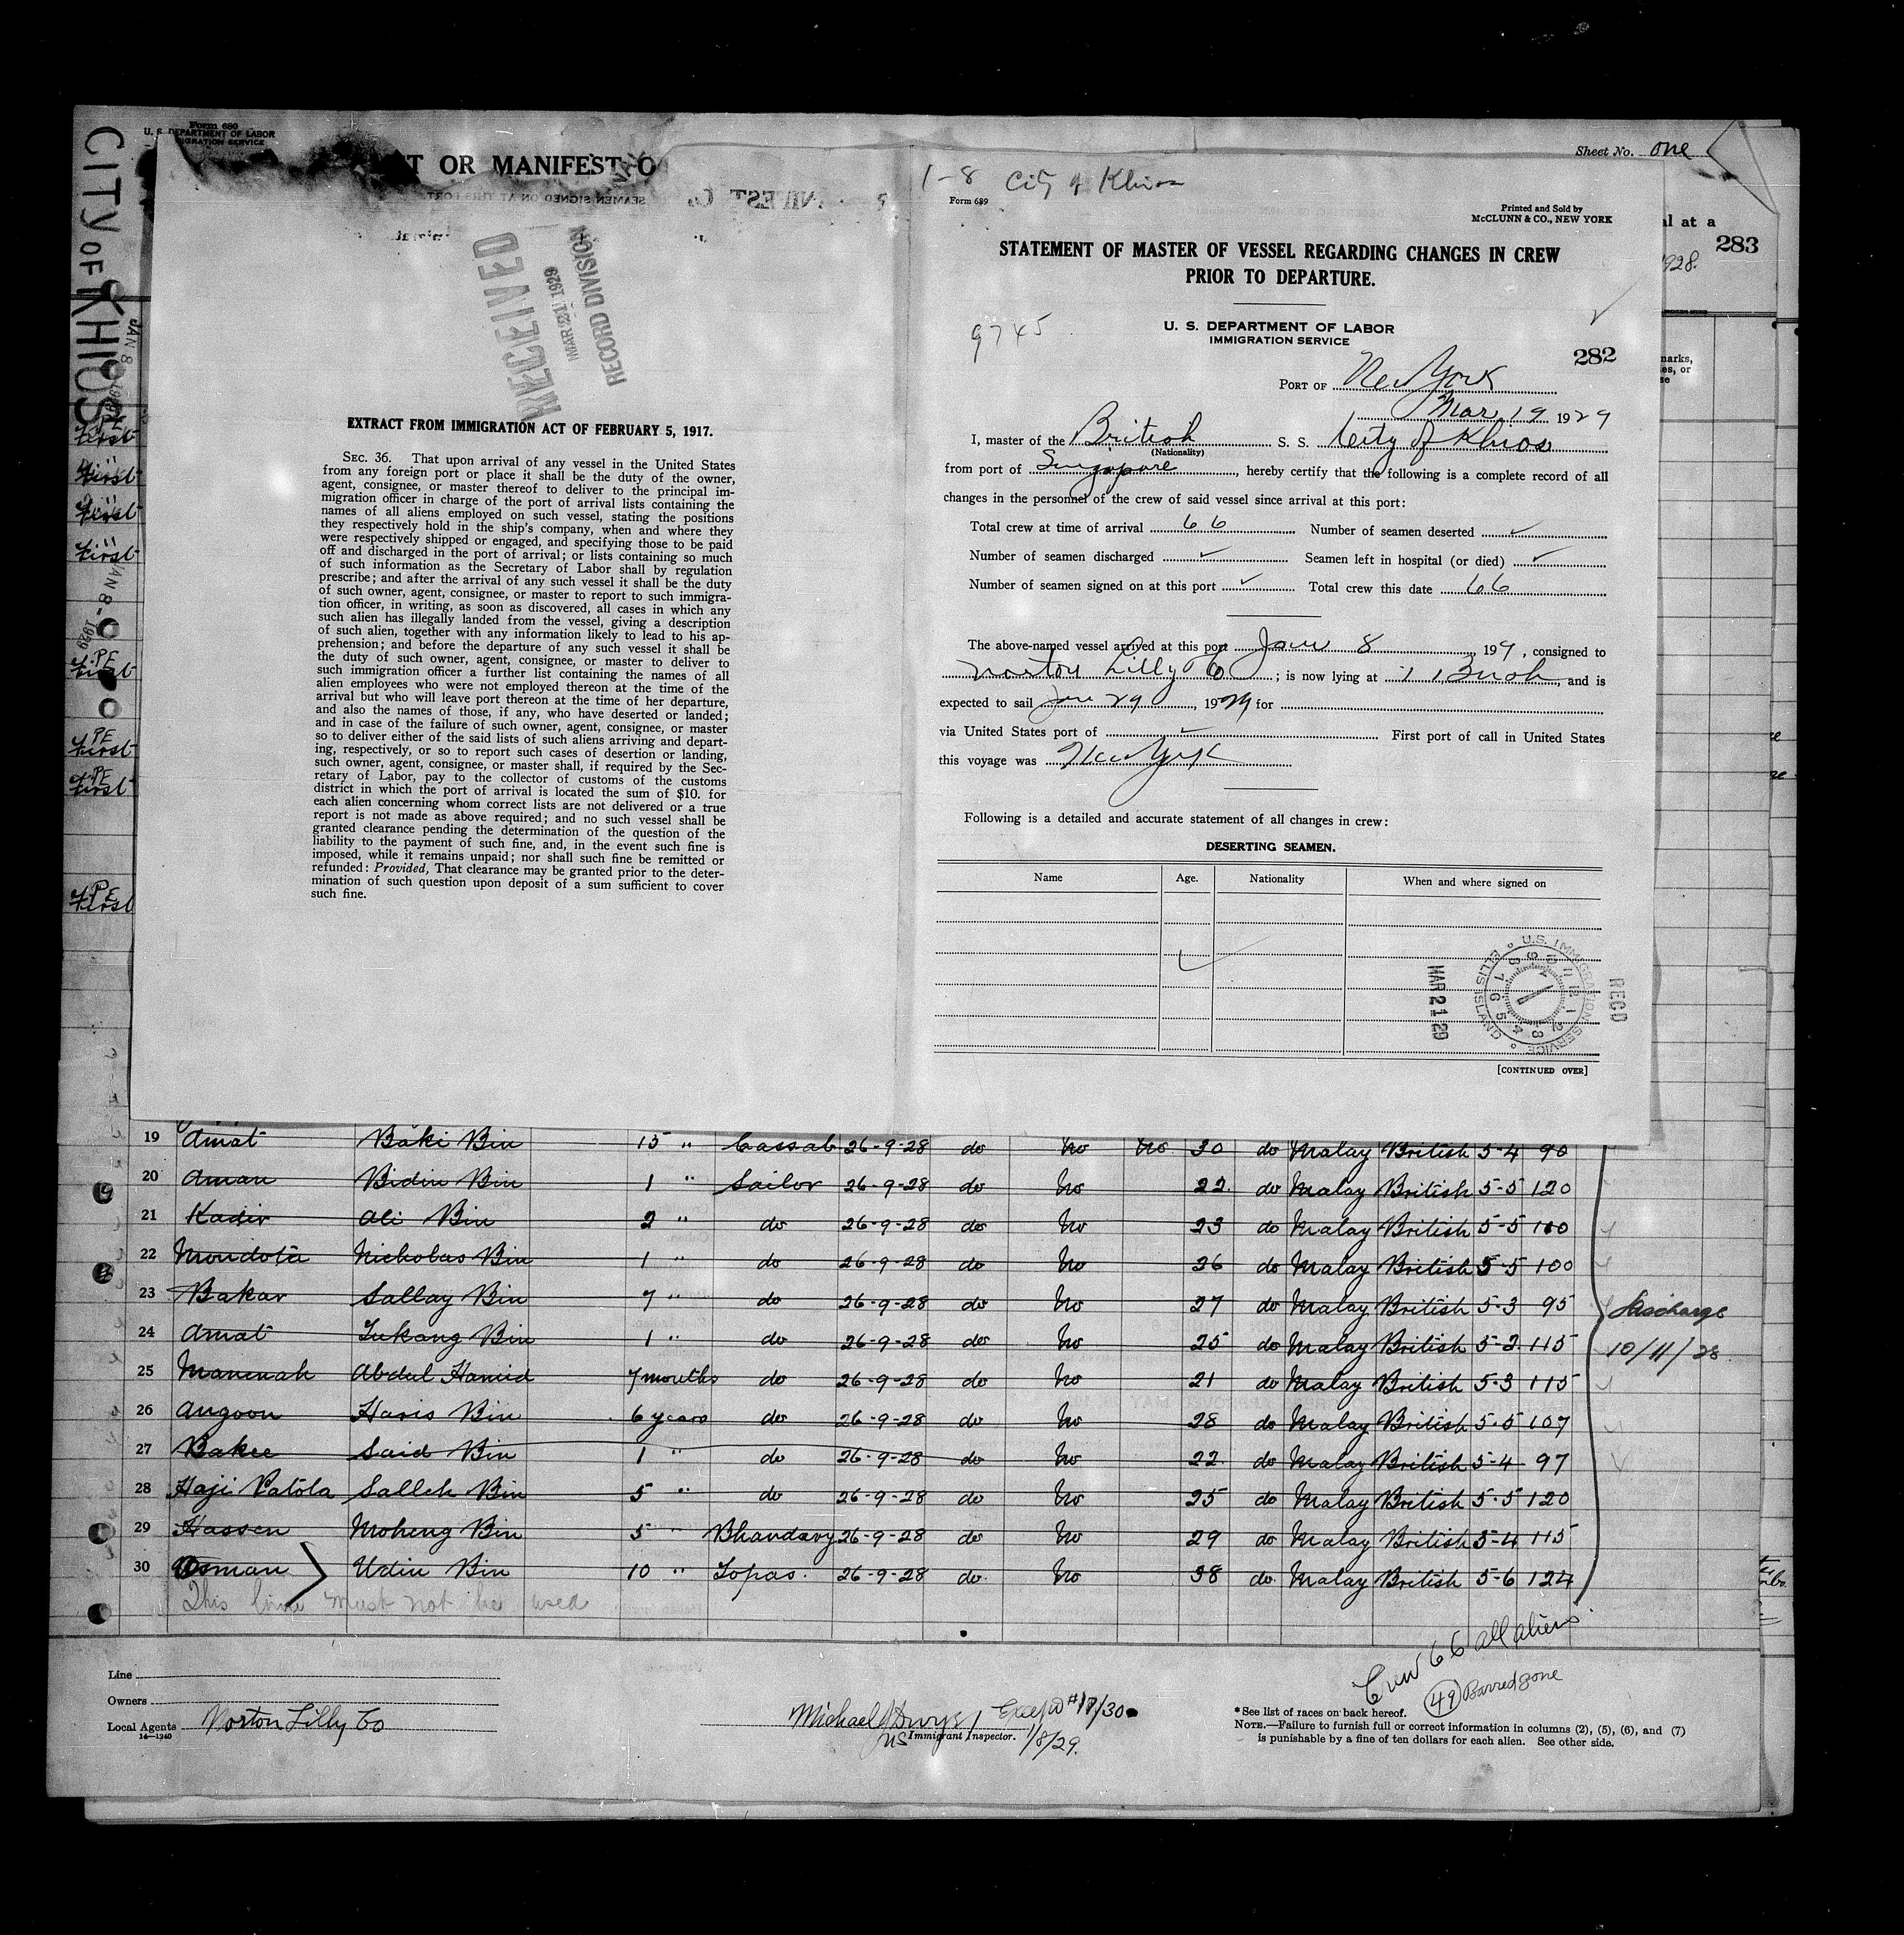 Form 689
U. S. DEPARTMENT OF LABOR
IMMIGRATION SERVICE
OR MANIFEST O
Sheet No. one
CITY OF KHIOS
JAN 8
al at a
283
1928.
1-8 City of Khios
Form 689
Printed and Sold by
McCLUNN & CO., NEW YORK
STATEMENT OF MASTER OF VESSEL REGARDING CHANGES IN CREW
PRIOR TO DEPARTURE.
9745
U. S. DEPARTMENT OF LABOR
IMMIGRATION SERVICE
282
PORT OF New York
Mar 19 1929
I, master of the British S. S. City of Khios
(Nationality)
from port of Singapore, hereby certify that the following is a complete record of all
changes in the personnel of the crew of said vessel since arrival at this port:
Total crew at time of arrival 66 Number of seamen deserted ✓
Number of seamen discharged ✓ Seamen left in hospital (or died) ✓
Number of seamen signed on at this port ✓ Total crew this date 66
The above-named vessel arrived at this port Jan 8 199, consigned to
Norton Lilly Co; is now lying at Bush, and is
expected to sail Jan 29, 1929 for
via United States port of First port of call in United States
this voyage was New York
Following is a detailed and accurate statement of all changes in crew:
DESERTING SEAMEN.
Name Age. Nationality When and where signed on
✓
U.S. IMMIGRATION SERVICE
ELLIS ISLAND
MAR 21 29
REC'D
[CONTINUED OVER]
RECEIVED
MAR 21 1929
RECORD DIVISION
EXTRACT FROM IMMIGRATION ACT OF FEBRUARY 5, 1917.
SEC. 36. That upon arrival of any vessel in the United States
from any foreign port or place it shall be the duty of the owner,
agent, consignee, or master thereof to deliver to the principal im-
migration officer in charge of the port of arrival lists containing the
names of all aliens employed on such vessel, stating the positions
they respectively hold in the ship's company, when and where they
were respectively shipped or engaged, and specifying those to be paid
off and discharged in the port of arrival; or lists containing so much
of such information as the Secretary of Labor shall by regulation
prescribe; and after the arrival of any such vessel it shall be the duty
of such owner, agent, consignee, or master to report to such immigra-
tion officer, in writing, as soon as discovered, all cases in which any
such alien has illegally landed from the vessel, giving a description
of such alien, together with any information likely to lead to his ap-
prehension; and before the departure of any such vessel it shall be
the duty of such owner, agent, consignee, or master to deliver to
such immigration officer a further list containing the names of all
alien employees who were not employed thereon at the time of the
arrival but who will leave port thereon at the time of her departure,
and also the names of those, if any, who have deserted or landed;
and in case of the failure of such owner, agent, consignee, or master
so to deliver either of the said lists of such aliens arriving and depart-
ing, respectively, or so to report such cases of desertion or landing,
such owner, agent, consignee, or master shall, if required by the Sec-
retary of Labor, pay to the collector of customs of the customs
district in which the port of arrival is located the sum of $10. for
each alien concerning whom correct lists are not delivered or a true
report is not made as above required; and no such vessel shall be
granted clearance pending the determination of the question of the
liability to the payment of such fine, and, in the event such fine is
imposed, while it remains unpaid; nor shall such fine be remitted or
refunded: Provided, That clearance may be granted prior to the deter-
mination of such question upon deposit of a sum sufficient to cover
such fine.
19 Amat Baki Bin 15 " Cassab 26-9-28 do No No 30 do Malay British 5-4 90
20 Aman Bidin Bin 1 " Sailor 26-9-28 do No 22 do Malay British 5-5 120
21 Kadir Ali Bin 2 " do 26-9-28 do No 23 do Malay British 5-5 100
22 Mondota Nicholas Bin 1 " do 26-9-28 do No 26 do Malay British 5-5 100
23 Bakar Sallay Bin 7 " do 26-9-28 do No 27 do Malay British 5-3 95
24 Amat Tukang Bin 1 " do 26-9-28 do No 25 do Malay British 5-2 115
25 Manmah Abdul Hamid 7 months do 26-9-28 do No 21 do Malay British 5-3 115
26 Angoon Haris Bin 6 years do 26-9-28 do No 28 do Malay British 5-5 107
27 Bakee Said Bin 1 " do 26-9-28 do No 22 do Malay British 5-4 97
28 Haji Patola Salleh Bin 5 " do 26-9-28 do No 25 do Malay British 5-5 120
29 Hassen Moheng Bin 5 " Bhandary 26-9-28 do No 29 do Malay British 5-4 115
30 Osman Udin Bin 10 " Topas. 26-9-28 do. No 38 do Malay British 5-6 124
Discharge
10/11/28
This line must not be used
Line
Owners
Local Agents Norton Lilly Co
14-1240
Immigrant Inspector.
1/8/29.
Crew 66 all aliens
49 Barred zone
*See list of races on back hereof.
NOTE.—Failure to furnish full or correct information in columns (2), (5), (6), and (7)
is punishable by a fine of ten dollars for each alien. See other side.